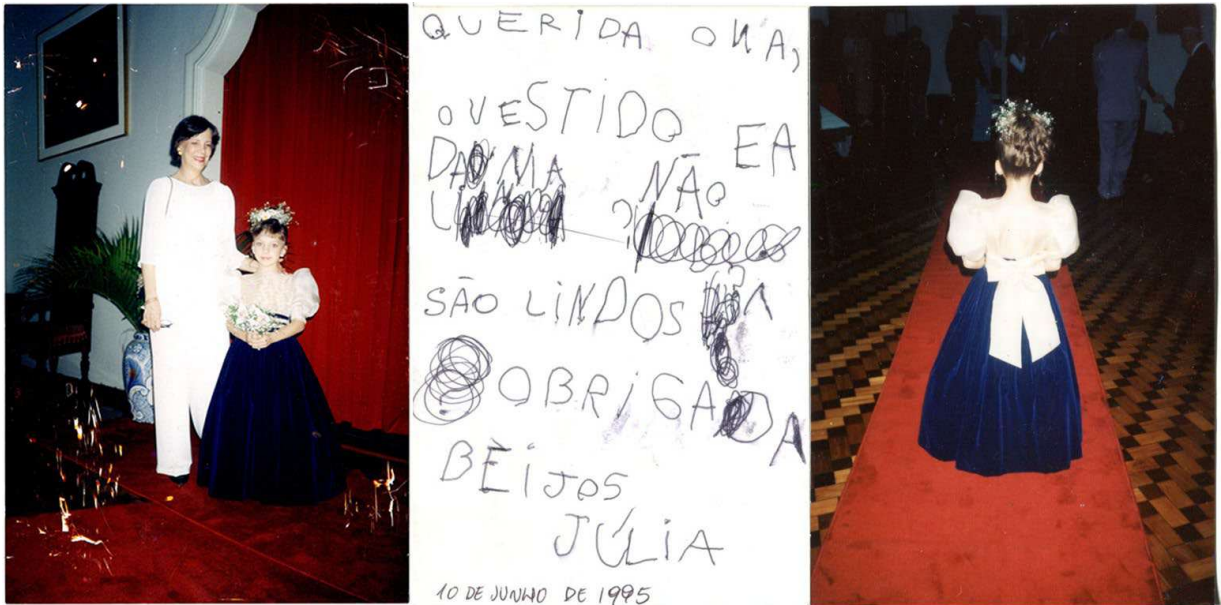 QUERIDA OMA,
O VESTIDO E A
DAMA NÃO
SÃO LINDOS
OBRIGADA
BEIJOS
JÚLIA
10 DE JUNHO DE 1995